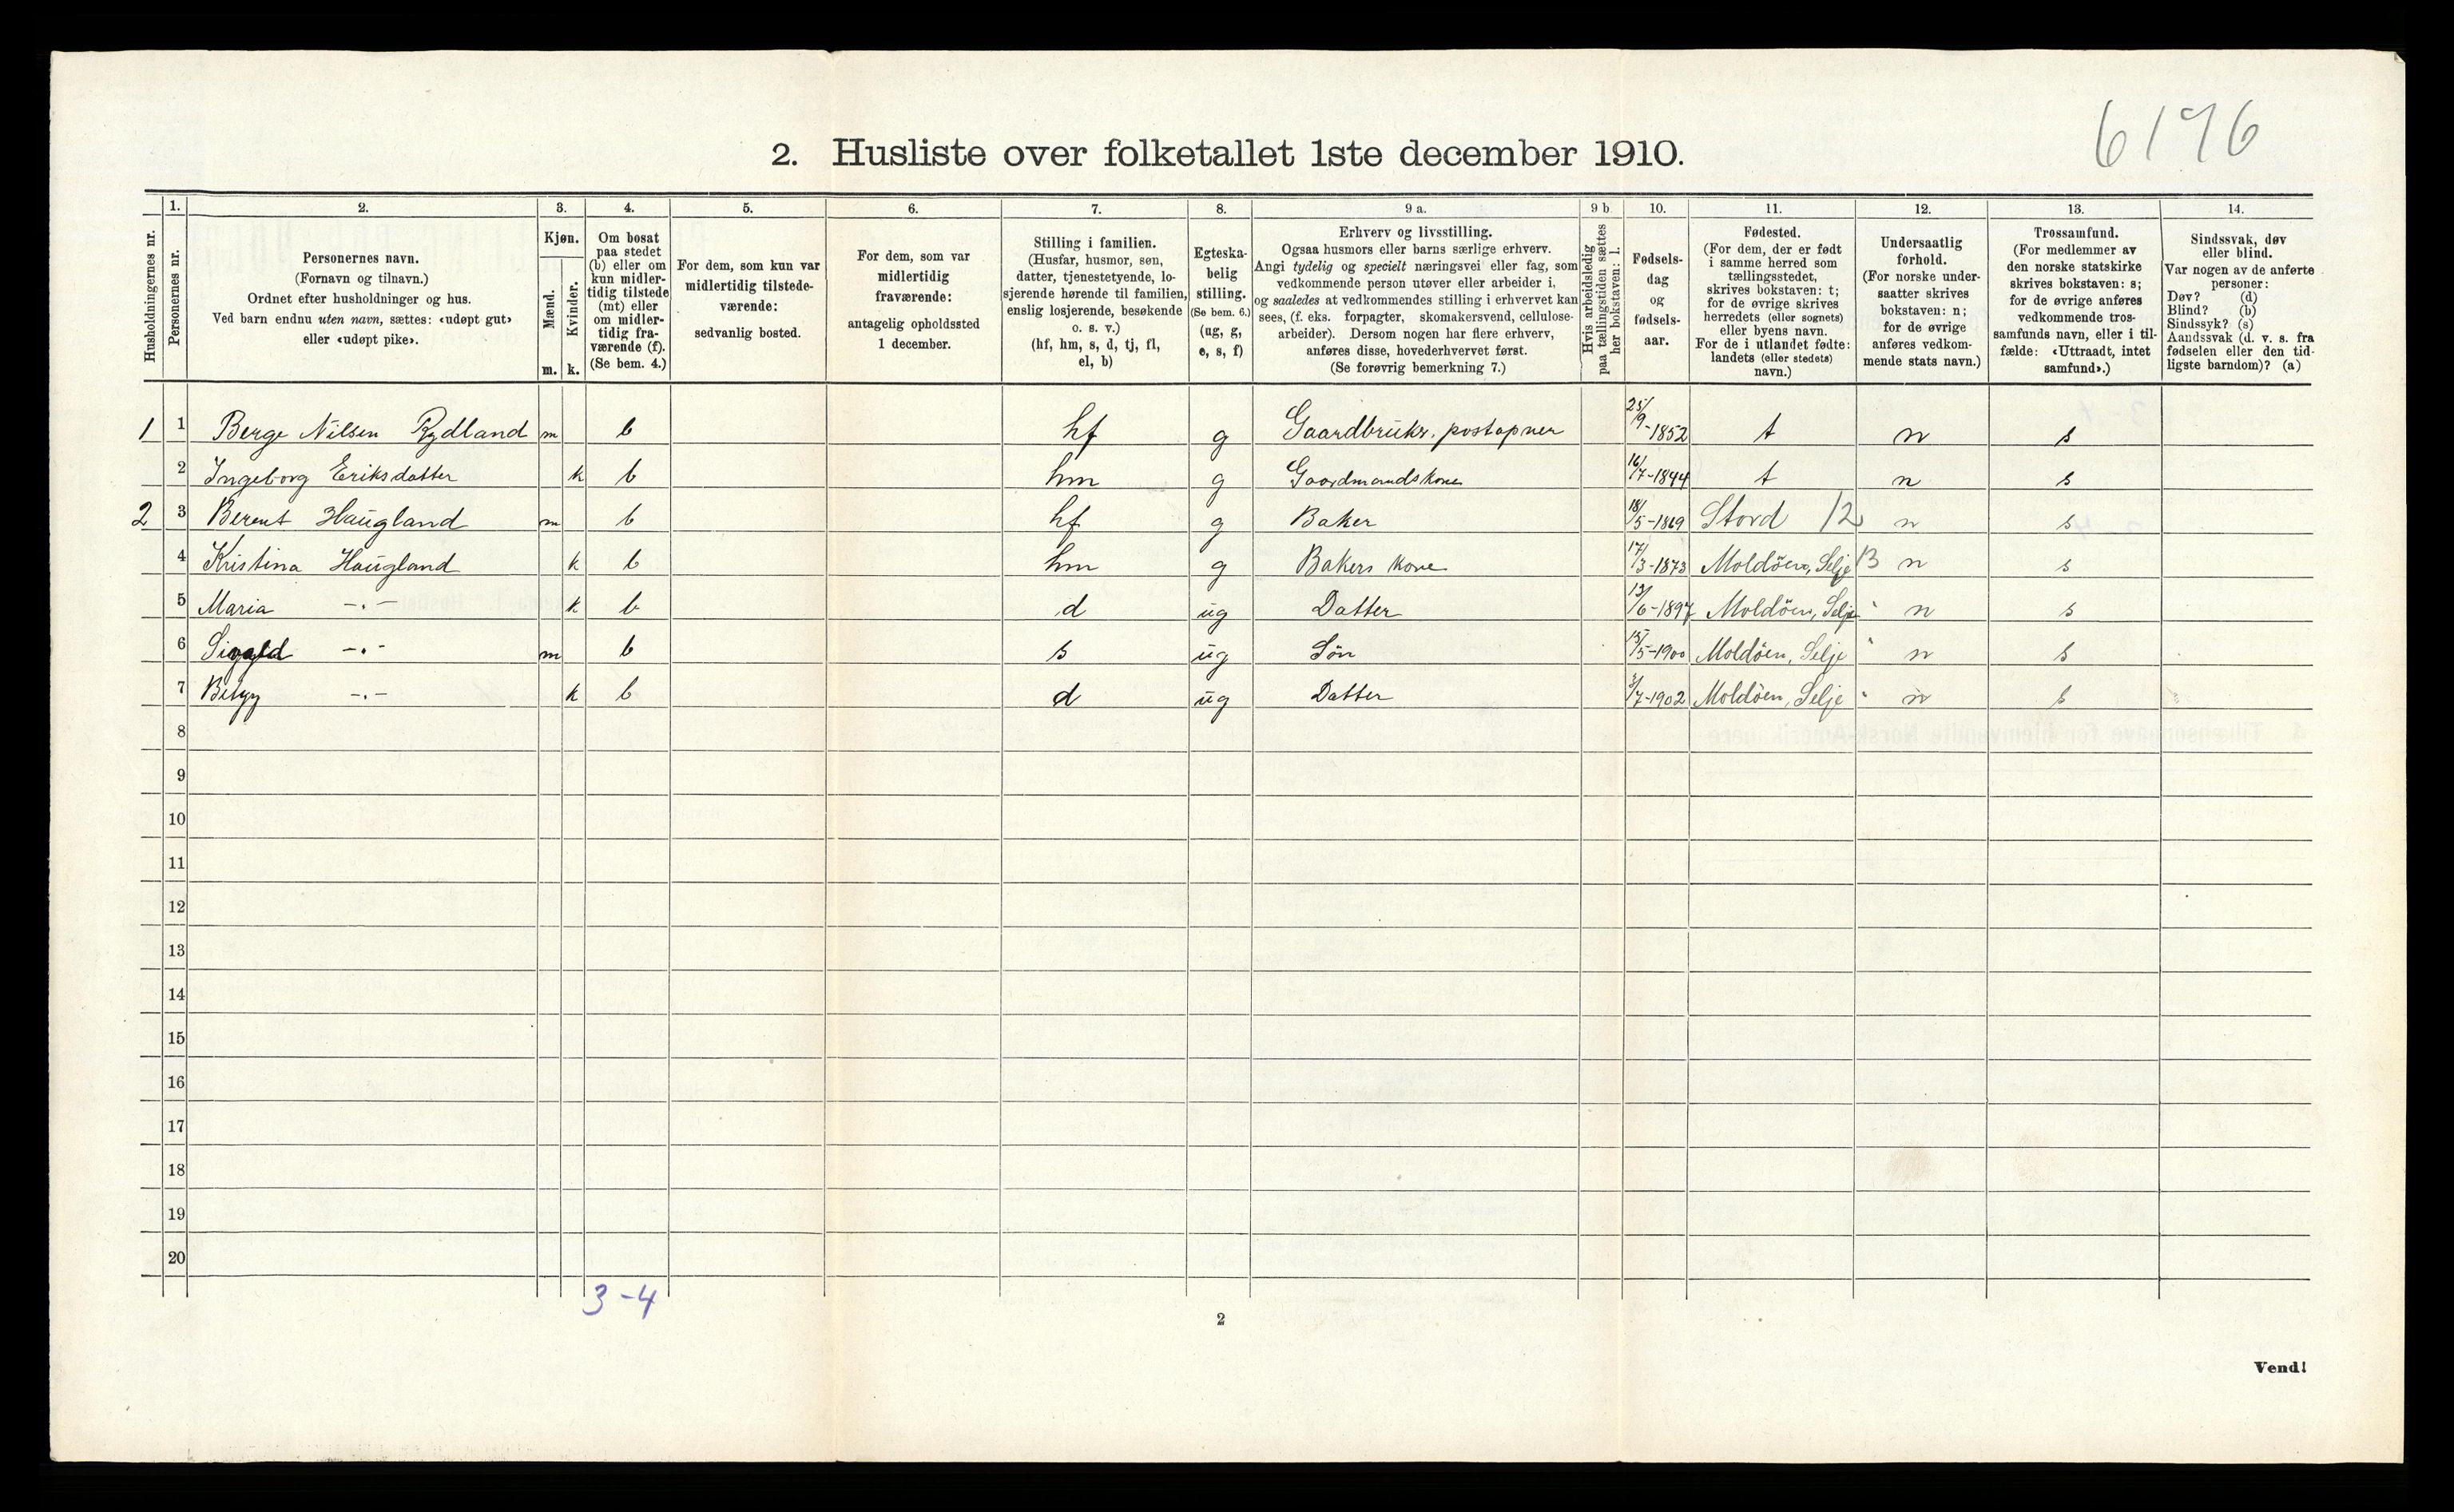 6196
2. Husliste over folketallet 1ste december 1910.
Husholdningernes nr.
1.
Personernes nr.
2.
Personernes navn.
(Fornavn og tilnavn.)
Ordnet efter husholdninger og hus.
Ved barn endnu uten navn, sættes: «udøpt gut»
eller «udøpt pike».
3.
Kjøn.
Mænd.
Kvinder.
m. k.
4.
Om bosat
paa stedet
(b) eller om
kun midler-
tidig tilstede
(mt) eller
om midler-
tidig fra-
værende (f).
(Se bem. 4.)
5.
For dem, som kun var
midlertidig tilstede-
værende:
sedvanlig bosted.
6.
For dem, som var
midlertidig
fraværende:
antagelig opholdssted
1 december.
7.
Stilling i familien.
(Husfar, husmor, søn,
datter, tjenestetyende, lo-
sjerende hørende til familien,
enslig losjerende, besøkende
o. s. v.)
(hf, hm, s, d, tj, fl,
el, b)
8.
Egteska-
belig
stilling.
(Se bem. 6.)
(ug, g,
e, s, f)
9 a.
Erhverv og livsstilling.
Ogsaa husmors eller barns særlige erhverv.
Angi tydelig og specielt næringsvei eller fag, som
vedkommende person utøver eller arbeider i,
og saaledes at vedkommendes stilling i erhvervet kan
sees, (f. eks. forpagter, skomakersvend, cellulose-
arbeider). Dersom nogen har flere erhverv,
anføres disse, hovederhvervet først.
(Se forøvrig bemerkning 7.)
9 b
Hvis arbeidsledig
paa tællingstiden sættes
her bokstaven: l.
10.
Fødsels-
dag
og
fødsels-
aar.
11.
Fødested.
(For dem, der er født
i samme herred som
tællingsstedet,
skrives bokstaven: t;
for de øvrige skrives
herredets (eller sognets)
eller byens navn.
For de i utlandet fødte:
landets (eller stedets)
navn.)
12.
Undersaatlig
forhold.
(For norske under-
saatter skrives
bokstaven: n;
for de øvrige
anføres vedkom-
mende stats navn.)
13.
Trossamfund.
(For medlemmer av
den norske statskirke
skrives bokstaven: s;
for de øvrige anføres
vedkommende tros-
samfunds navn, eller i til-
fælde: «Uttraadt, intet
samfund».)
14.
Sindssvak, døv
eller blind.
Var nogen av de anførte
personer:
Døv? (d)
Blind? (b)
Sindssyk? (s)
Aandssvak (d. v. s. fra
fødselen eller den tid-
ligste barndom)? (a)
1 1 Berge Nilsen Rydland m b hf g Gaardbruker, postopner 25/9-1852 t n s
2 Ingeborg Eriksdatter k b hm g Gaardmandskone 16/7-1844 t n s
2 3 Berent Haugland m b hf g Baker 18/5-1869 Stord 12 n s
4 Kristina Haugland k b hm g Bakers kone 17/3-1873 Moldöen, Selje 13 n s
5 Maria -"- k b d ug Datter 13/6-1897 Moldöen, Selje " n s
6 Sigvald -"- m b s ug Sön 15/5-1900 Moldöen, Selje " n s
7 Betzy -"- k b d ug Datter 3/7-1902 Moldöen, Selje " n s
8
9
10
11
12
13
14
15
16
17
18
19
20
3-4
2
Vend!